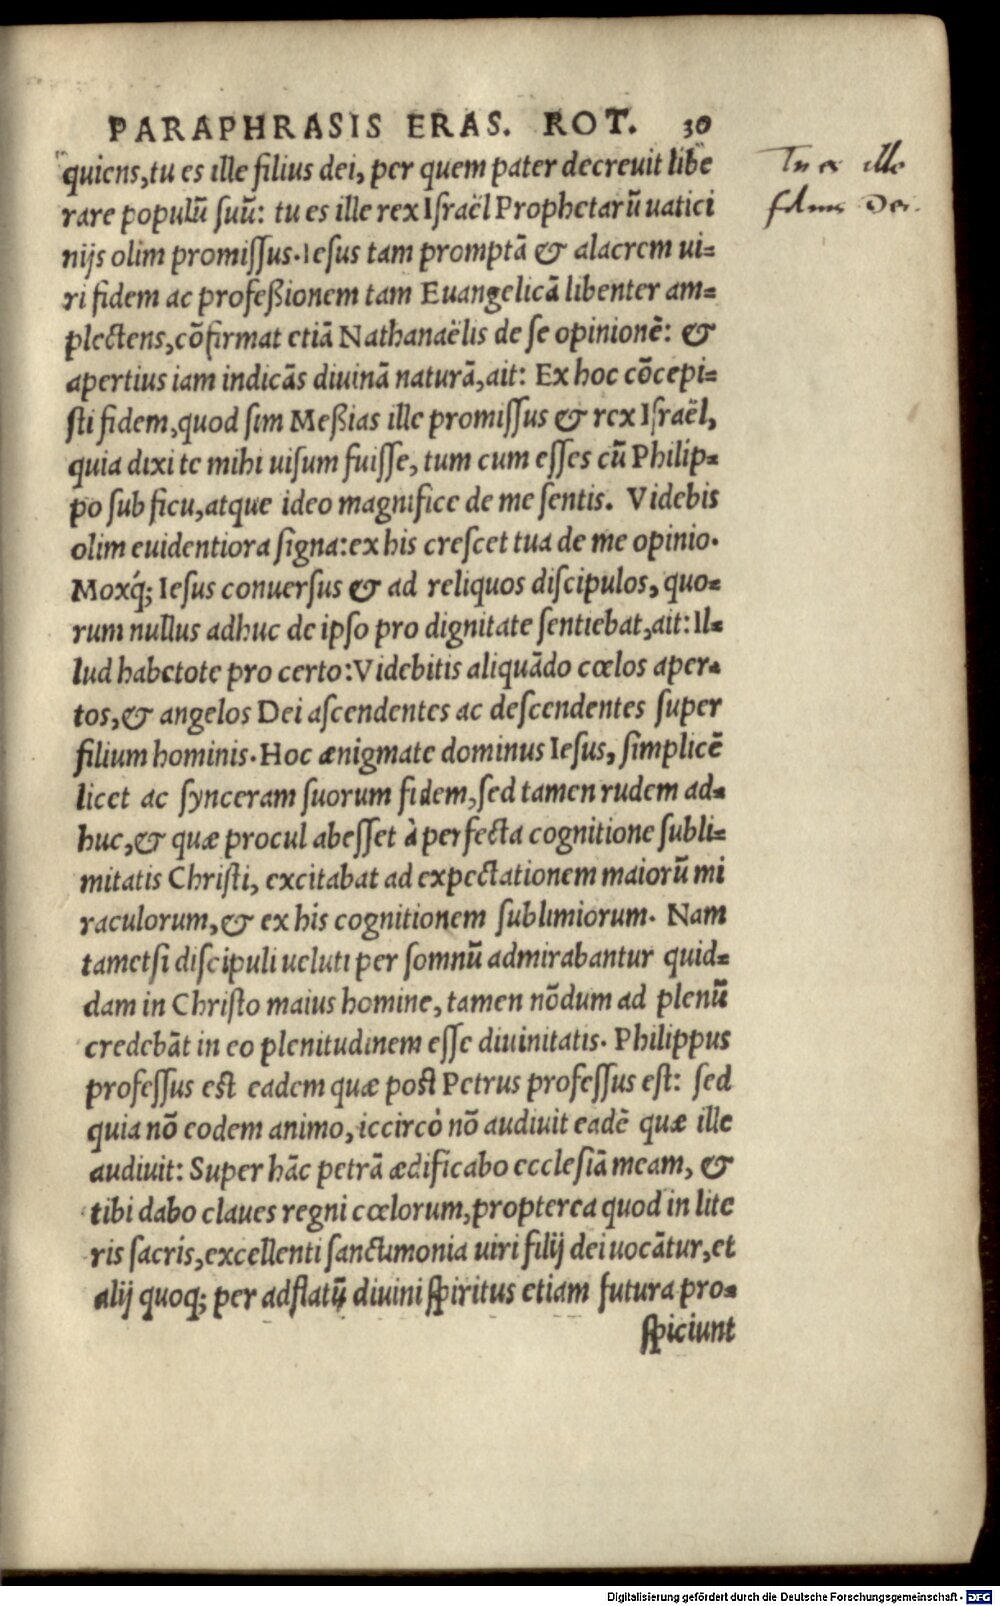 PARAPHRASIS ERAS. ROT. 30
quiens,tu es ille filius dei, per quem pater decreuit libe
rare populū suū: tu es ille rex Iſraël Prophetarū uatici
nijs olim promiſſus. Iesus tam promptā & alacrem ui=
ri fidem ac profeßionem tam Euangelicā libenter am=
plectens,cōfirmat etiā Nathanaëlis de se opinionē: &
apertius iam indicās diuinā naturā,ait: Ex hoc cōcepi=
ſti fidem,quod ſim Meßias ille promiſſus & rex Iſraël,
quia dixi te mihi uiſum fuiſſe, tum cum eſſes cū Philip=
po ſub ficu,atque ideo magnifice de me ſentis. Videbis
olim euidentiora ſigna:ex his creſcet tua de me opinio.
Moxq́; Ieſus conuerſus & ad reliquos diſcipulos, quo-
rum nullus adhuc de ipſo pro dignitate ſentiebat,ait: Il=
lud habetote pro certo:Videbitis aliquādo cœlos aper=
tos,& angelos Dei aſcendentes ac deſcendentes ſuper
filium hominis. Hoc ænigmate dominus Ieſus, ſimplicē
licet ac ſynceram ſuorum fidem,ſed tamen rudem ad=
huc,& quæ procul abeſſet à perfecta cognitione ſubli=
mitatis Chriſti, excitabat ad expectationem maiorū mi
raculorum,& ex his cognitionem ſublimiorum. Nam
tametſi diſcipuli ueluti per ſomnū admirabantur quid=
dam in Chriſto maius homine, tamen nōdum ad plenū
credebāt in eo plenitudinem eſſe diuinitatis. Philippus
profeſſus eſt eadem quæ poſt Petrus profeſſus eſt: ſed
quia nō eodem animo, iccircò nō audiuit eadē quæ ille
audiuit: Super hāc petrā ædificabo eccleſiā meam, &
tibi dabo claues regni cœlorum,propterea quod in lite
ris ſacris,excellenti ſanctimonia uiri filij dei uocātur,et
alij quoq; per adflatū diuini ſpiritus etiam futura pro=
ſpiciunt
Tu es ille
filius Dei.
Digitalisierung gefördert durch die Deutsche Forschungsgemeinschaft - DFG